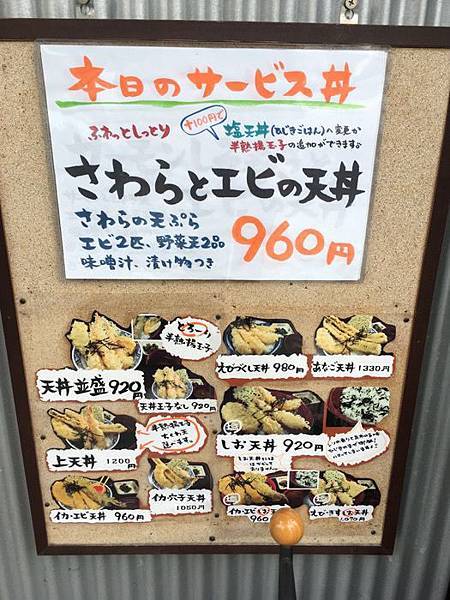 本日のサービス丼
ふわっとしっとり
+100円で
塩天丼(ひじきごはん)へ変更か
半熟揚玉子の追加ができます
さわらとエビの天丼
さわらの天ぷら
エビ2匹、野菜天2品
味噌汁、漬け物つき
960円
とろーり
半熟揚玉子
天丼並盛920円
天丼玉子なし920円
えびづくし天丼 980円
あなご天丼 1330円
上天丼 1200円
半熟揚玉子
しお天丼 920円
イカ・エビ天丼 960円
イカ・穴子天丼
1050円
イカ・エビしお天丼
960
えび・きすしお天丼
1070円